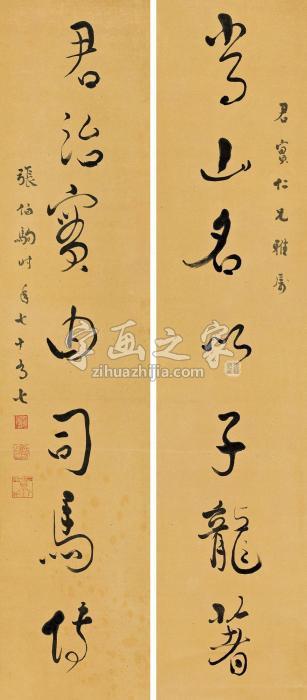 君實仁兄雅屬
常山名以子龍著
君治實由司馬傳
張伯駒時年七十有七
字画之家
zihuazhijia.com